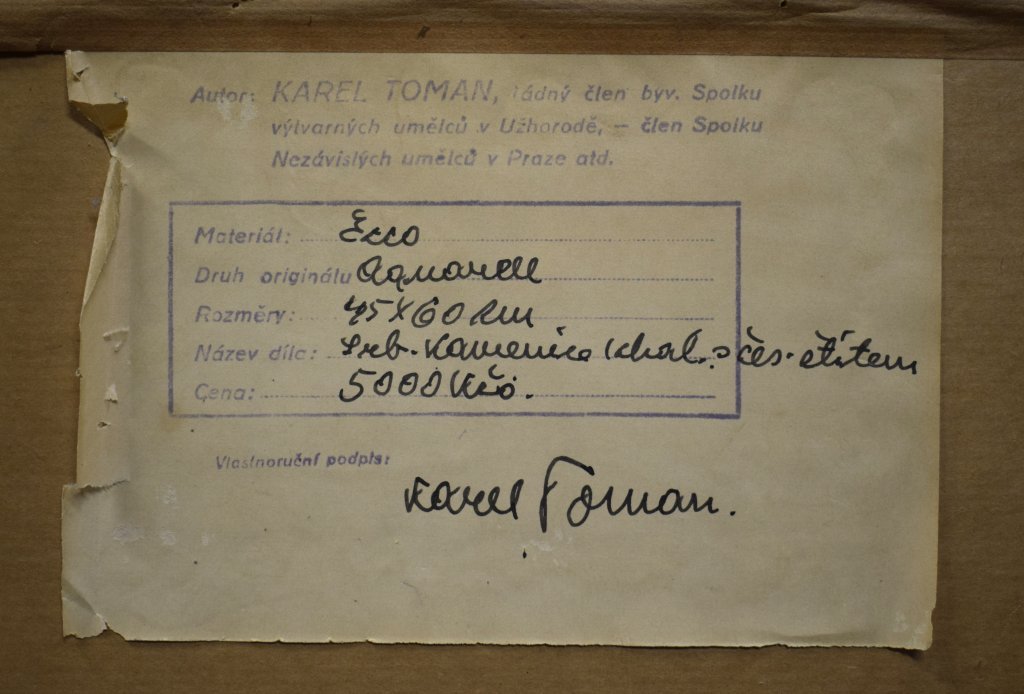 Autor: KAREL TOMAN, řádný člen býv. Spolku
výtvarných umělců v Užhorodě, – člen Spolku
Nezávislých umělců v Praze atd.
Materiál: Ecco
Druh originálu Aquarell
Rozměry: 45X60 cm
Název díla: Srb. Kamenice
Cena: 5000 Kčs.
Vlastnoruční podpis:
Karel Toman.